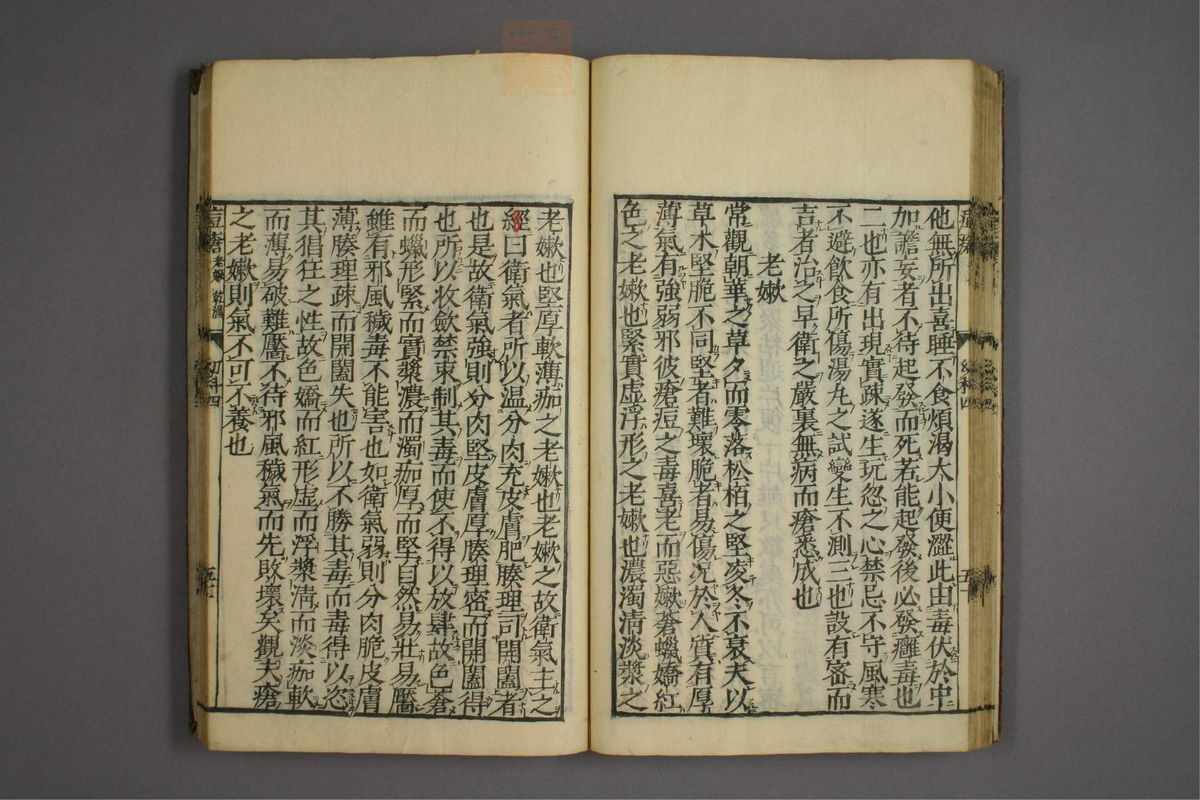 他無所出喜睡不食煩渴大小便澀此由毒伏於中
加譫妄者不待起發而死若能起發後必發癰毒也
二也亦有出現實疎遂生玩忽之心禁忌不守風寒
不避飲食所傷湯丸之試變生不測三也設有密而
吉者治之早衛之嚴裏無病而瘡悉成也
老嫩
常觀朝華之草夕而零落松栢之堅凌冬不衰夫以
草木堅脆不同堅者難壞脆者易傷况於人質有厚
薄氣有強弱邪彼瘡痘之毒喜老而惡嫩蒼蠟嬌紅
色之老嫩也緊實虛浮形之老嫩也濃濁清淡漿之
老嫩也堅厚軟薄痂之老嫩也老嫩之故衛氣主之
經曰衛氣者所以温分肉充皮膚肥腠理司開闔者
也是故衛氣強則分肉堅皮膚厚腠理密而開闔得
也所以收斂禁束制其毒而使不得以放肆故色蒼
而蠟形緊而實漿濃而濁痂厚而堅自然易壯易靨
雖有邪風穢毒不能害也如衛氣弱則分肉脆皮膚
薄腠理疎而開闔失也所以不勝其毒而毒得以恣
其猖狂之性故色嬌而紅形虛而浮漿清而淡痂軟
而薄易破難靨不待邪風穢氣而先敗壞矣觀夫瘡
之老嫩則氣不可不養也
痘瘡 老嫩 幼科四